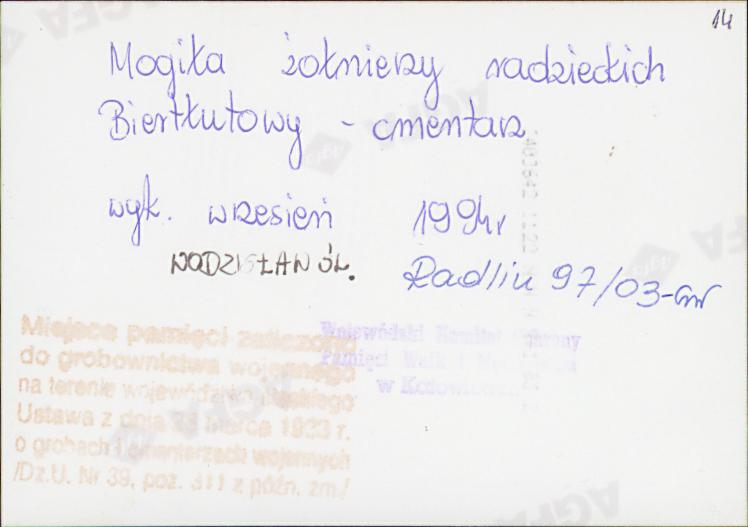 14
Mogiła żołnierzy radzieckich
Biertłutowy - cmentarz
wyk. wrzesień 1994r
WODZISŁAW ŚL.
Radlin 97/03-
Miejsce pamięci zaliczone
do grobownictwa wojennego
na terenie województwa śląskiego
Ustawa z dnia 28 marca 1933 r.
o grobach i cmentarzach wojennych
/Dz.U. Nr 39, poz. 311 z późn. zm./
Wojewódzki Komitet Ochrony
Pamięci Walk i Męczeństwa
w Katowicach
AGFA